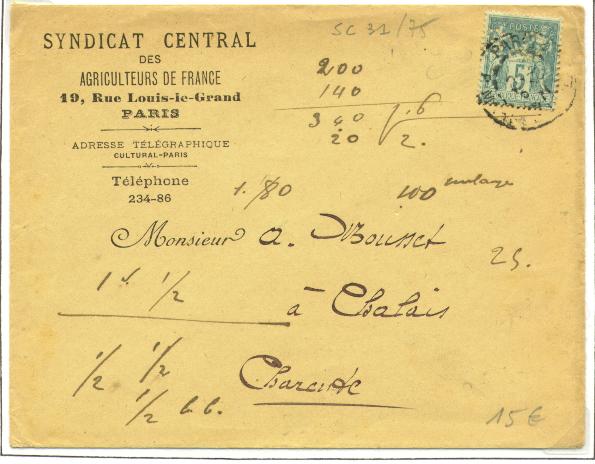 SC 31/75
SYNDICAT CENTRAL
DES
AGRICULTEURS DE FRANCE
19, Rue Louis-le-Grand
PARIS
ADRESSE TÉLÉGRAPHIQUE
CULTURAL-PARIS
Téléphone
234-86
POSTE
5
PARIS
200
140
340
20
2.
100
Monsieur A. Mousset
25.
1/2
à Chalais
1/2 1/2
Charente
1/2 b.b.
15€